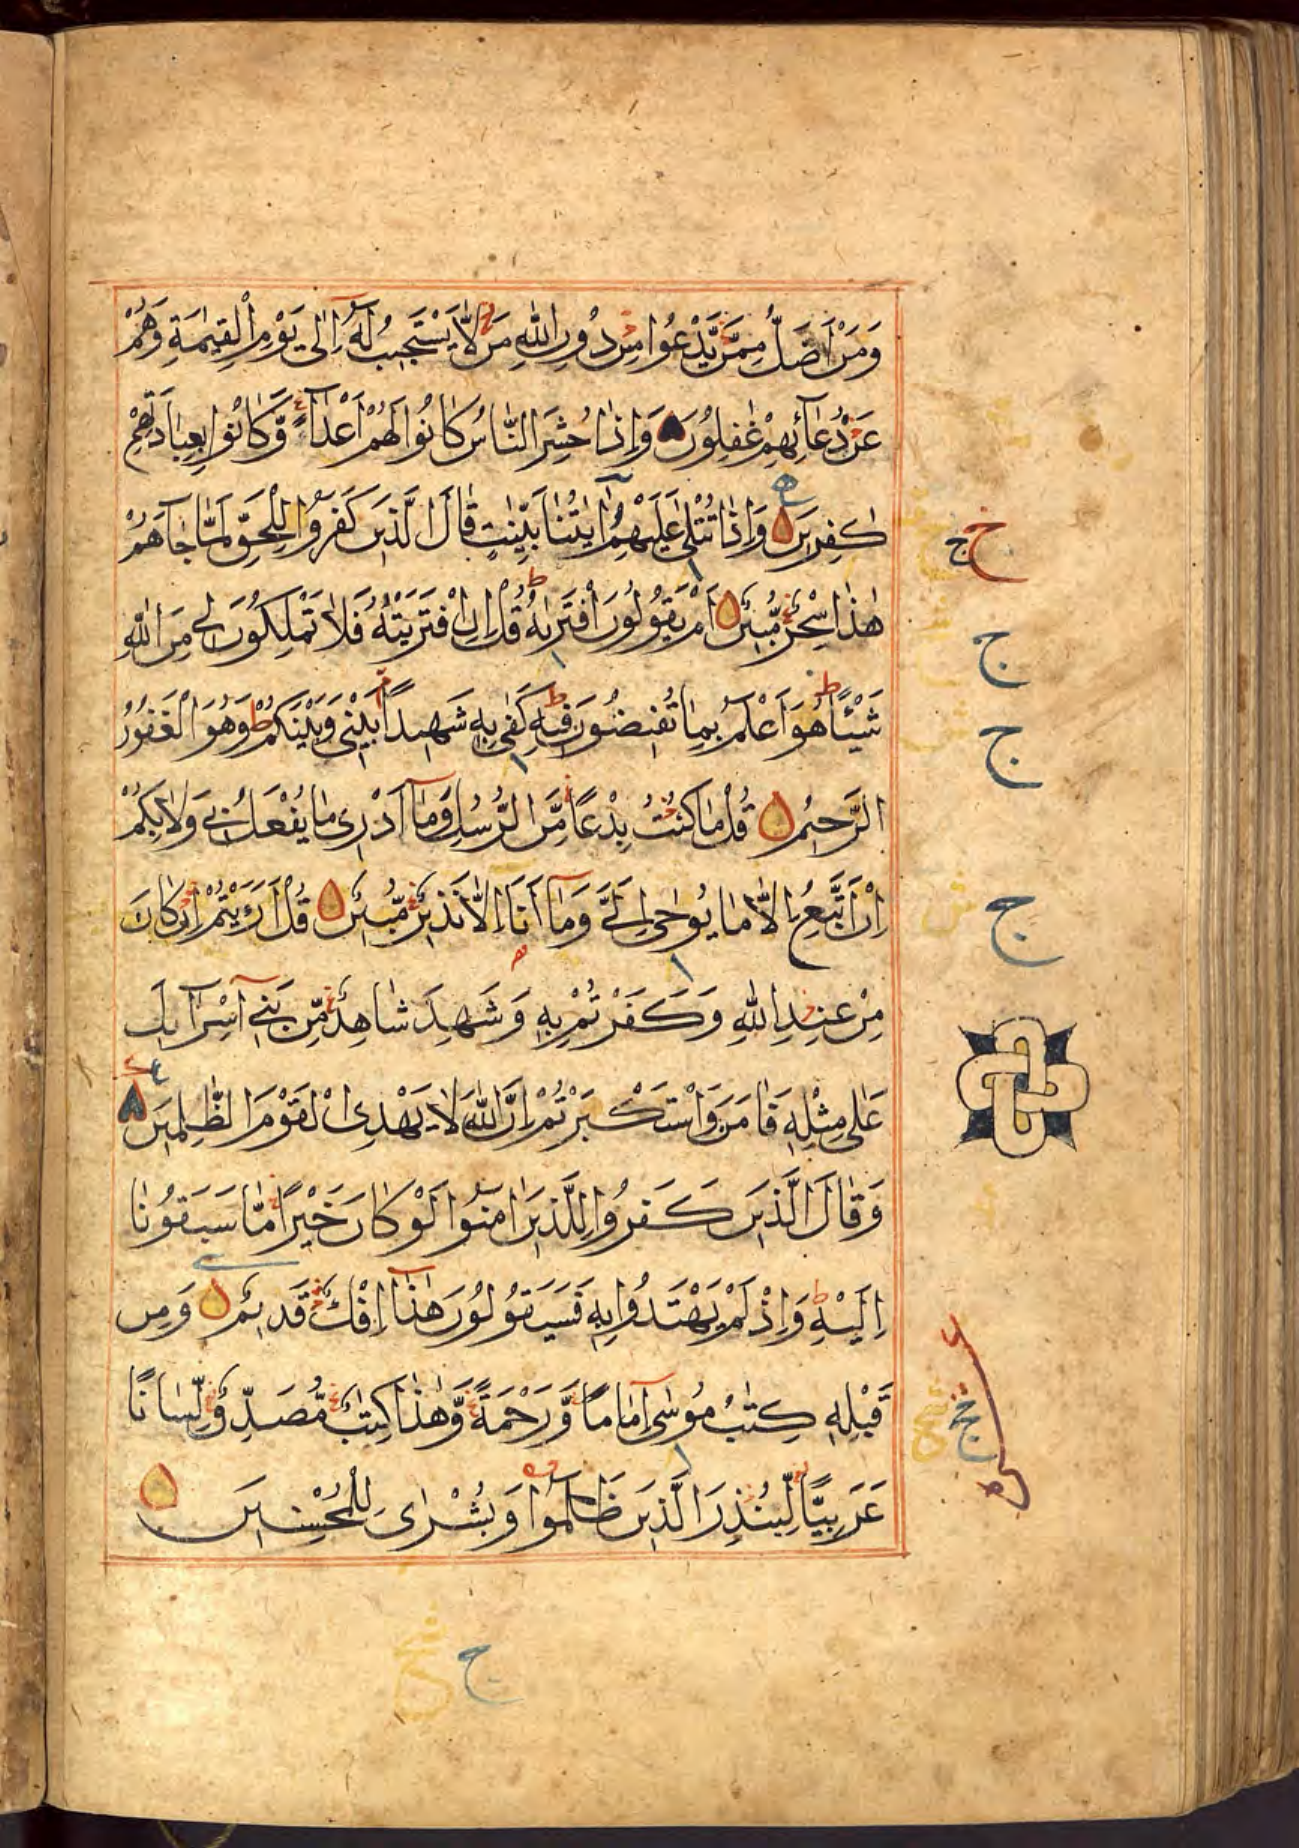 وَمَنْ اَضَلُّ مِمَّنْ يَّدْعُوا مِنْ دُوْنِ اللّٰهِ مَنْ لَّا يَسْتَجِيْبُ لَهٗٓ اِلٰى يَوْمِ الْقِيٰمَةِ وَهُمْ
عَنْ دُعَآئِهِمْ غٰفِلُوْنَ وَاِذَا حُشِرَ النَّاسُ كَانُوْا لَهُمْ اَعْدَآءً وَّكَانُوْا بِعِبَادَتِهِمْ
كٰفِرِيْنَ وَاِذَا تُتْلٰى عَلَيْهِمْ اٰيٰتُنَا بَيِّنٰتٍ قَالَ الَّذِيْنَ كَفَرُوْا لِلْحَقِّ لَمَّا جَآءَهُمْ
هٰذَا سِحْرٌ مُّبِيْنٌ اَمْ يَقُوْلُوْنَ افْتَرٰىهُ قُلْ اِنِ افْتَرَيْتُهٗ فَلَا تَمْلِكُوْنَ لِيْ مِنَ اللّٰهِ
شَيْئًا هُوَ اَعْلَمُ بِمَا تُفِيْضُوْنَ فِيْهِ كَفٰى بِهٖ شَهِيْدًا بَيْنِيْ وَبَيْنَكُمْ وَهُوَ الْغَفُوْرُ
الرَّحِيْمُ قُلْ مَا كُنْتُ بِدْعًا مِّنَ الرُّسُلِ وَمَآ اَدْرِيْ مَا يُفْعَلُ بِيْ وَلَا بِكُمْ
اِنْ اَتَّبِعُ اِلَّا مَا يُوْحٰى اِلَيَّ وَمَآ اَنَا اِلَّا نَذِيْرٌ مُّبِيْنٌ قُلْ اَرَءَيْتُمْ اِنْ كَانَ
مِنْ عِنْدِ اللّٰهِ وَكَفَرْتُمْ بِهٖ وَشَهِدَ شَاهِدٌ مِّنْ بَنِيْٓ اِسْرَآءِيْلَ
عَلٰى مِثْلِهٖ فَاٰمَنَ وَاسْتَكْبَرْتُمْ اِنَّ اللّٰهَ لَا يَهْدِى الْقَوْمَ الظّٰلِمِيْنَ
وَقَالَ الَّذِيْنَ كَفَرُوْا لِلَّذِيْنَ اٰمَنُوْا لَوْ كَانَ خَيْرًا مَّا سَبَقُوْنَا
اِلَيْهِ وَاِذْ لَمْ يَهْتَدُوْا بِهٖ فَسَيَقُوْلُوْنَ هٰذَآ اِفْكٌ قَدِيْمٌ وَمِنْ
قَبْلِهٖ كِتٰبُ مُوْسٰٓى اِمَامًا وَّرَحْمَةً وَّهٰذَا كِتٰبٌ مُّصَدِّقٌ لِّسَانًا
عَرَبِيًّا لِّيُنْذِرَ الَّذِيْنَ ظَلَمُوْا وَبُشْرٰى لِلْمُحْسِنِيْنَ
خ ج
ج
ج
ج
ج